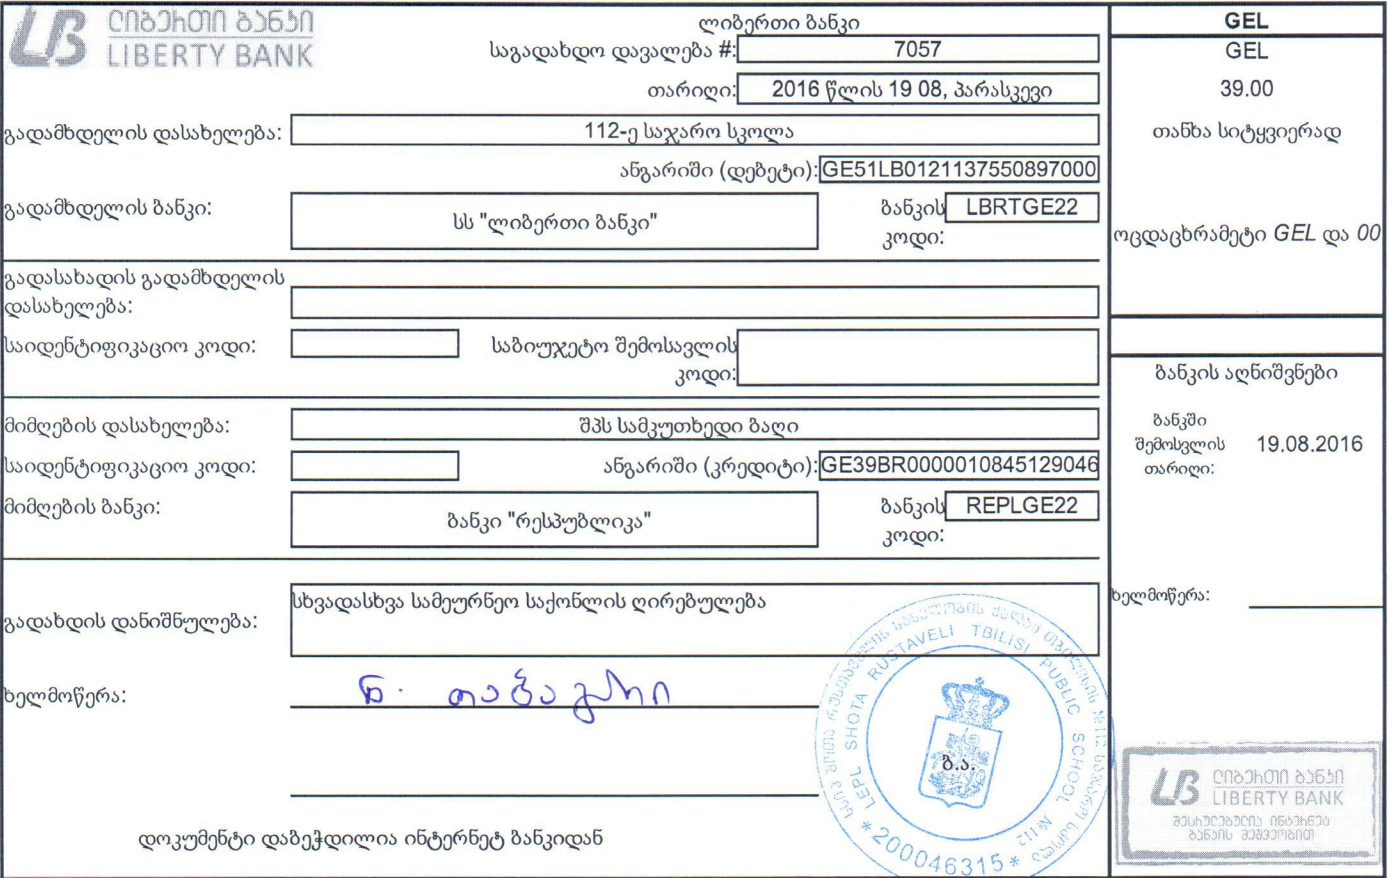 ლიბერთი ბანკი
LIBERTY BANK
ლიბერთი ბანკი
საგადახდო დავალება #: 7057
თარიღი: 2016 წლის 19 08, პარასკევი
გადამხდელის დასახელება: 112-ე საჯარო სკოლა
ანგარიში (დებეტი): GE51LB0121137550897000
გადამხდელის ბანკი: სს "ლიბერთი ბანკი" ბანკის კოდი: LBRTGE22
გადასახადის გადამხდელის
დასახელება:
საიდენტიფიკაციო კოდი: საბიუჯეტო შემოსავლის
კოდი:
მიმღების დასახელება: შპს სამკუთხედი ბაღი
საიდენტიფიკაციო კოდი: ანგარიში (კრედიტი): GE39BR0000010845129046
მიმღების ბანკი: ბანკი "რესპუბლიკა" ბანკის კოდი: REPLGE22
გადახდის დანიშნულება: სხვადასხვა სამეურნეო საქონლის ღირებულება
ხელმოწერა: ნ.
ბ.ა.
LEPL SHOTA RUSTAVELI TBILISI PUBLIC SCHOOL №112
*200046315*
დოკუმენტი დაბეჭდილია ინტერნეტ ბანკიდან
GEL
GEL
39.00
თანხა სიტყვიერად
ოცდაცხრამეტი GEL და 00
ბანკის აღნიშვნები
ბანკში
შემოსვლის
თარიღი:
19.08.2016
ხელმოწერა:
ლიბერთი ბანკი
LIBERTY BANK
შესრულებულია ინტერნეტ
ბანკის მეშვეობით